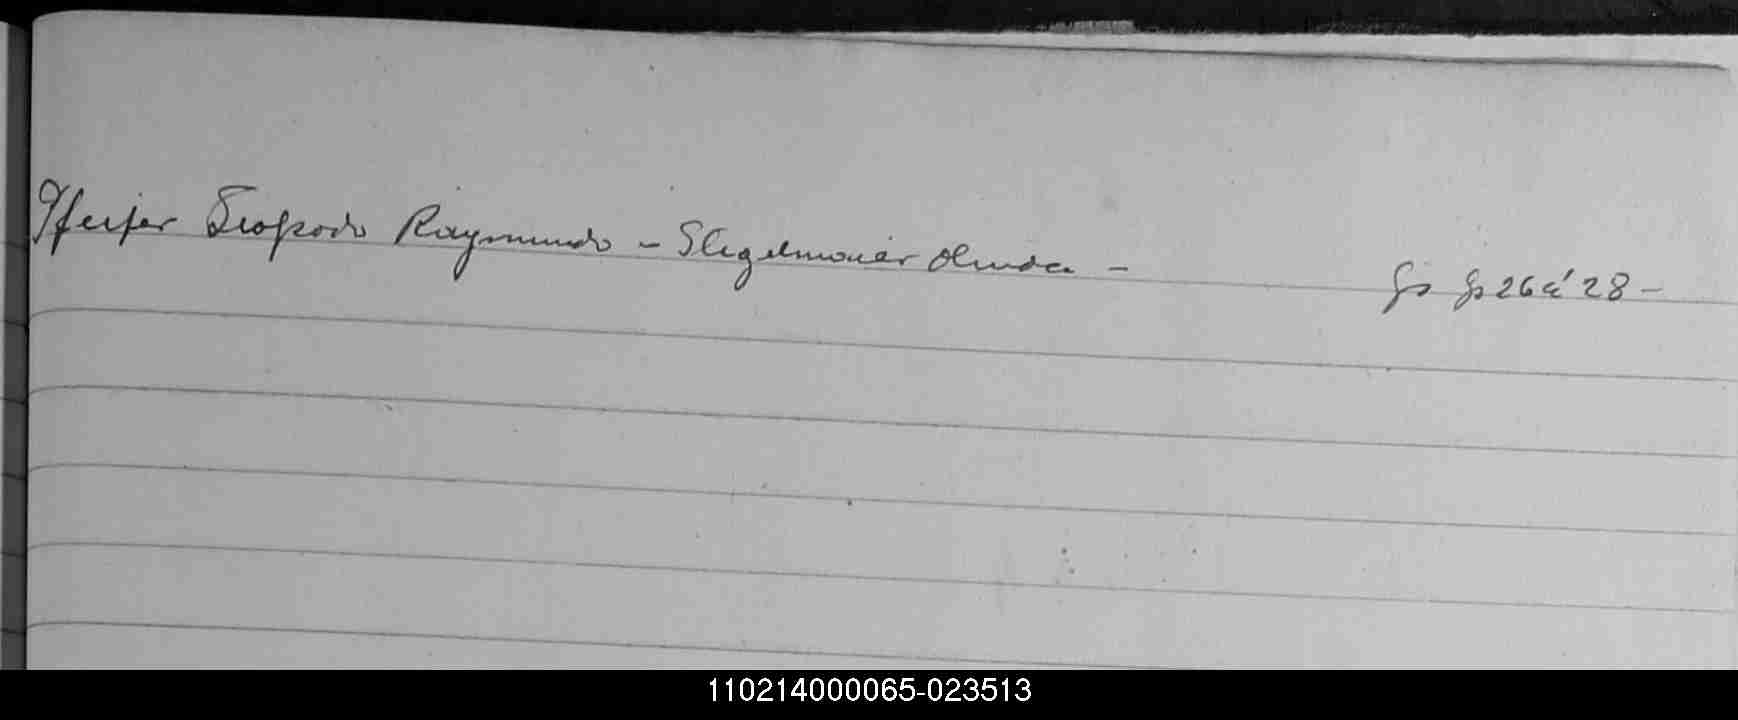 Pfeifer Leopodo Raymundo - Slegelmaier Olinda - fs fs 26 á 28 -
110214000065-023513